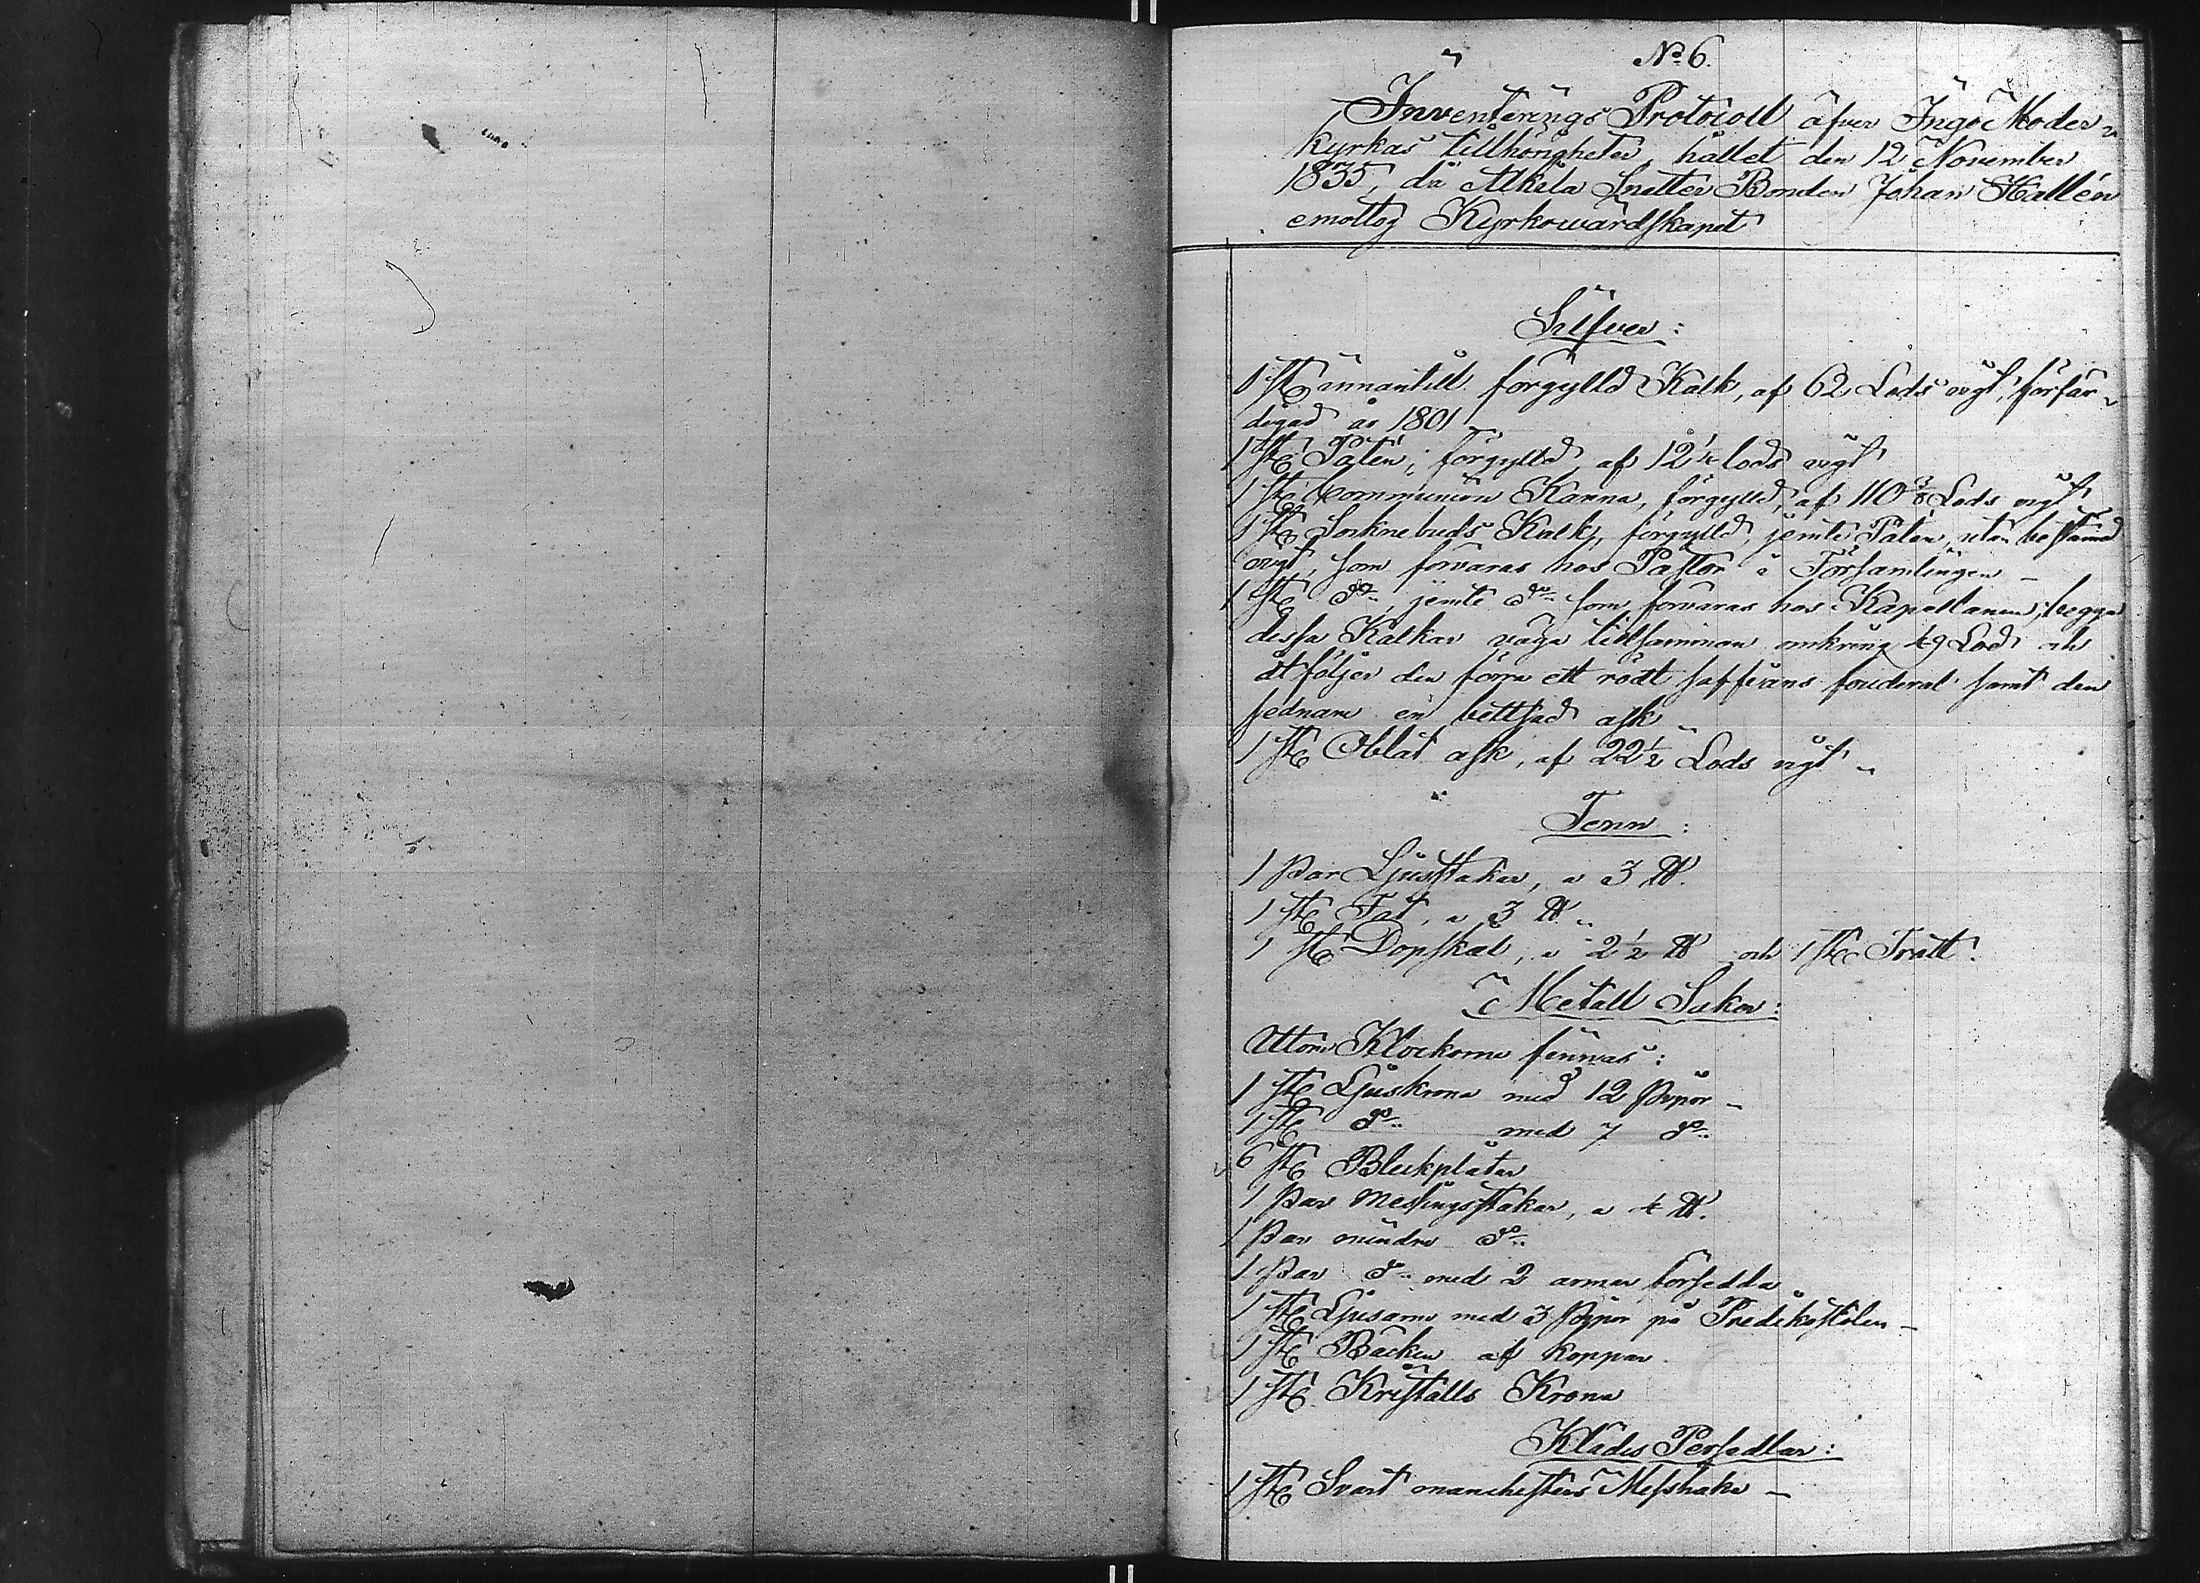 No 6.
Inventerings Protocoll öfver Ingo Moder-
kyrkas tillhörigheter, hållet den 12 November
1835, då Alkila Snätter Bonden Johan Hallén
emottog Kyrkowärdskapet
Silfver:
1 st innantill förgylld Kalk, af 62 Lods vigt, förfär-
digad år 1801
1 st Patén, förgylld, af 12 1/4 lods vigt
1 st Communion Kanna, förgylld, af 110 3/8 Lods vigt
1 st Socknebuds Kalk, förgylld, jemte Patén, utan bestämd
vigt, som förvaras hos Pastor i Församlingen –
1 st do, jemte do som förvaras hos Kapellanen, begge
dessa Kalkar väga tillsamman omkring 49 Lod och
åtföljer den förra ett rödt saffians fouderal samt den
sednare en ask
1 st Oblat ask, af 22 1/2 Lods vigt
Tenn:
1 Par Ljusstakar, a 3 ℔.
1 st Fat, a 3 ℔.
1 st Dopskål, a 2 1/2 ℔ och 1 st Tratt.
Metall Saker:
Utom Klockorne finnas:
1 st Ljuskrona med 12 pipor –
1 st do med 7 do
6 st Bleckplåtar
1 Par Messingsstakar, a 4 ℔.
1 Par mindre do
1 Par do med 2 armar försedda
1 st Ljusarm med 3 pipor på Predikostolen –
1 st Bäcken af koppar
1 st Kristalls Krona
Klädes Persedlar:
1 st Svart manchesters Messhake –